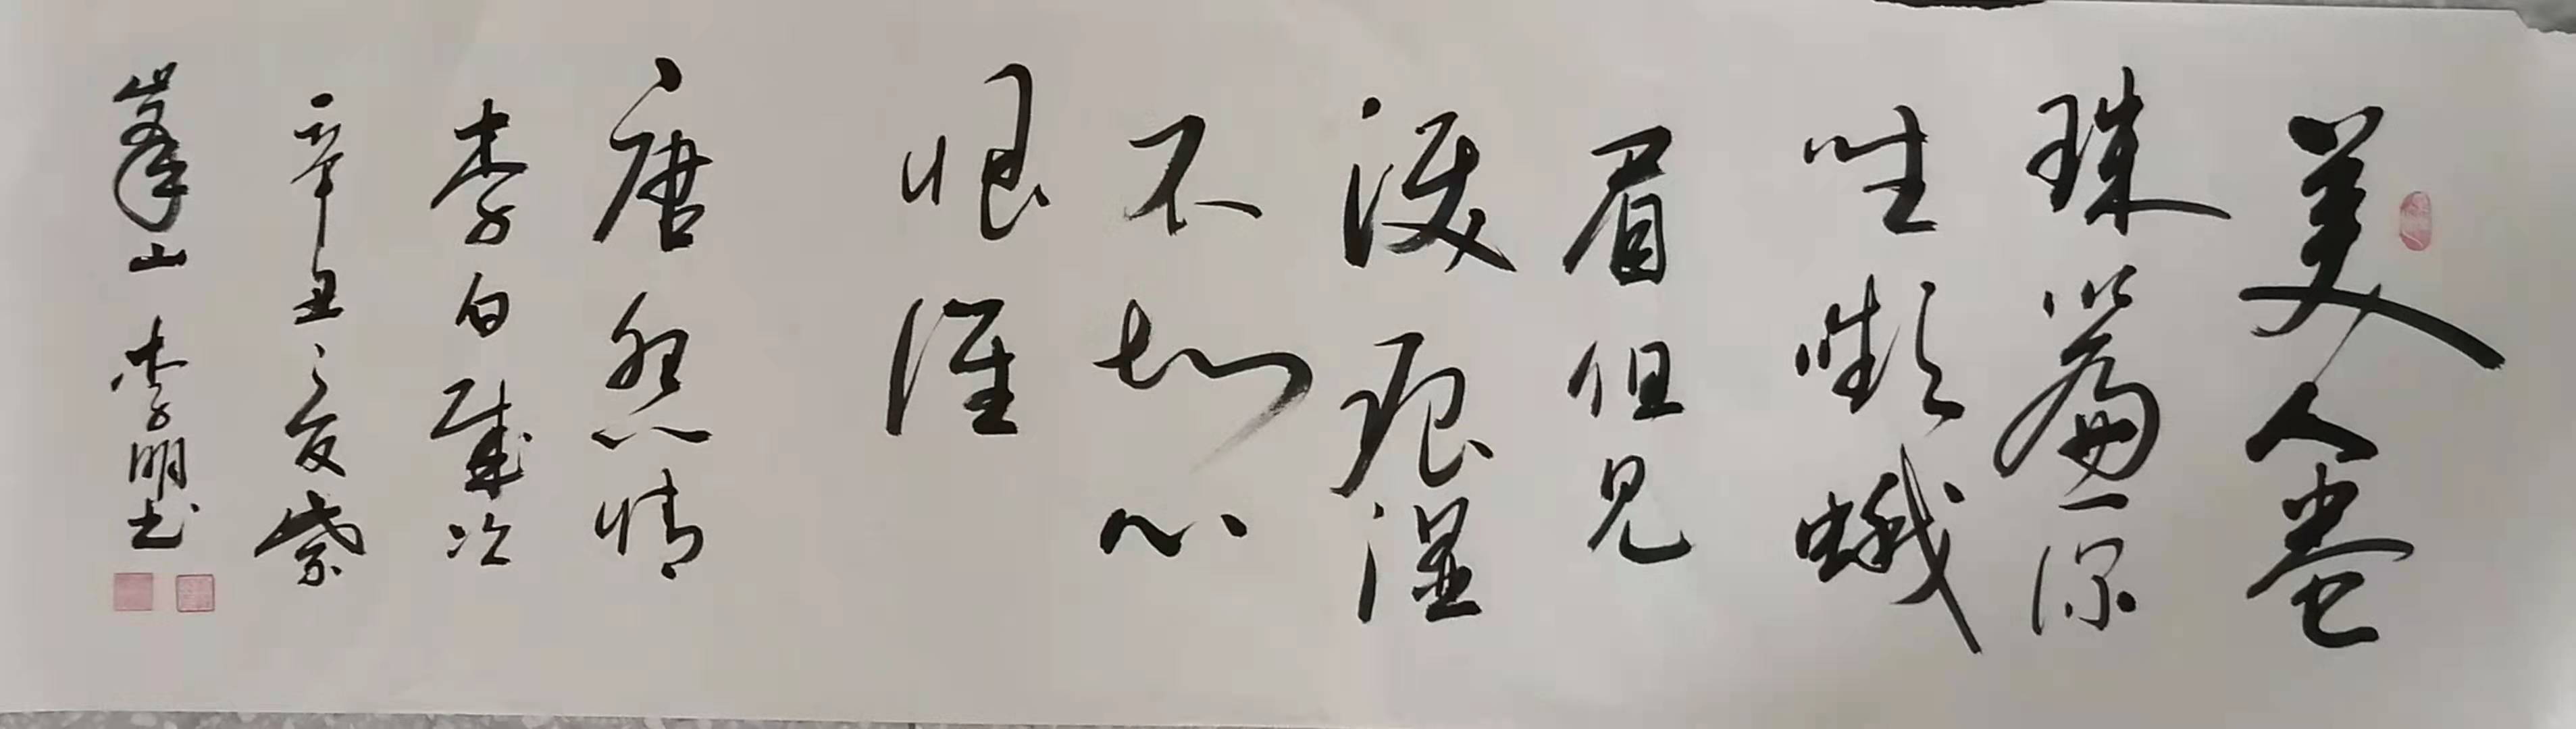 美人卷
珠簾深
坐嚬蛾
眉但見
淚痕濕
不知心
恨誰
唐怨情
李白
辛丑之夏紫
峯山李明书